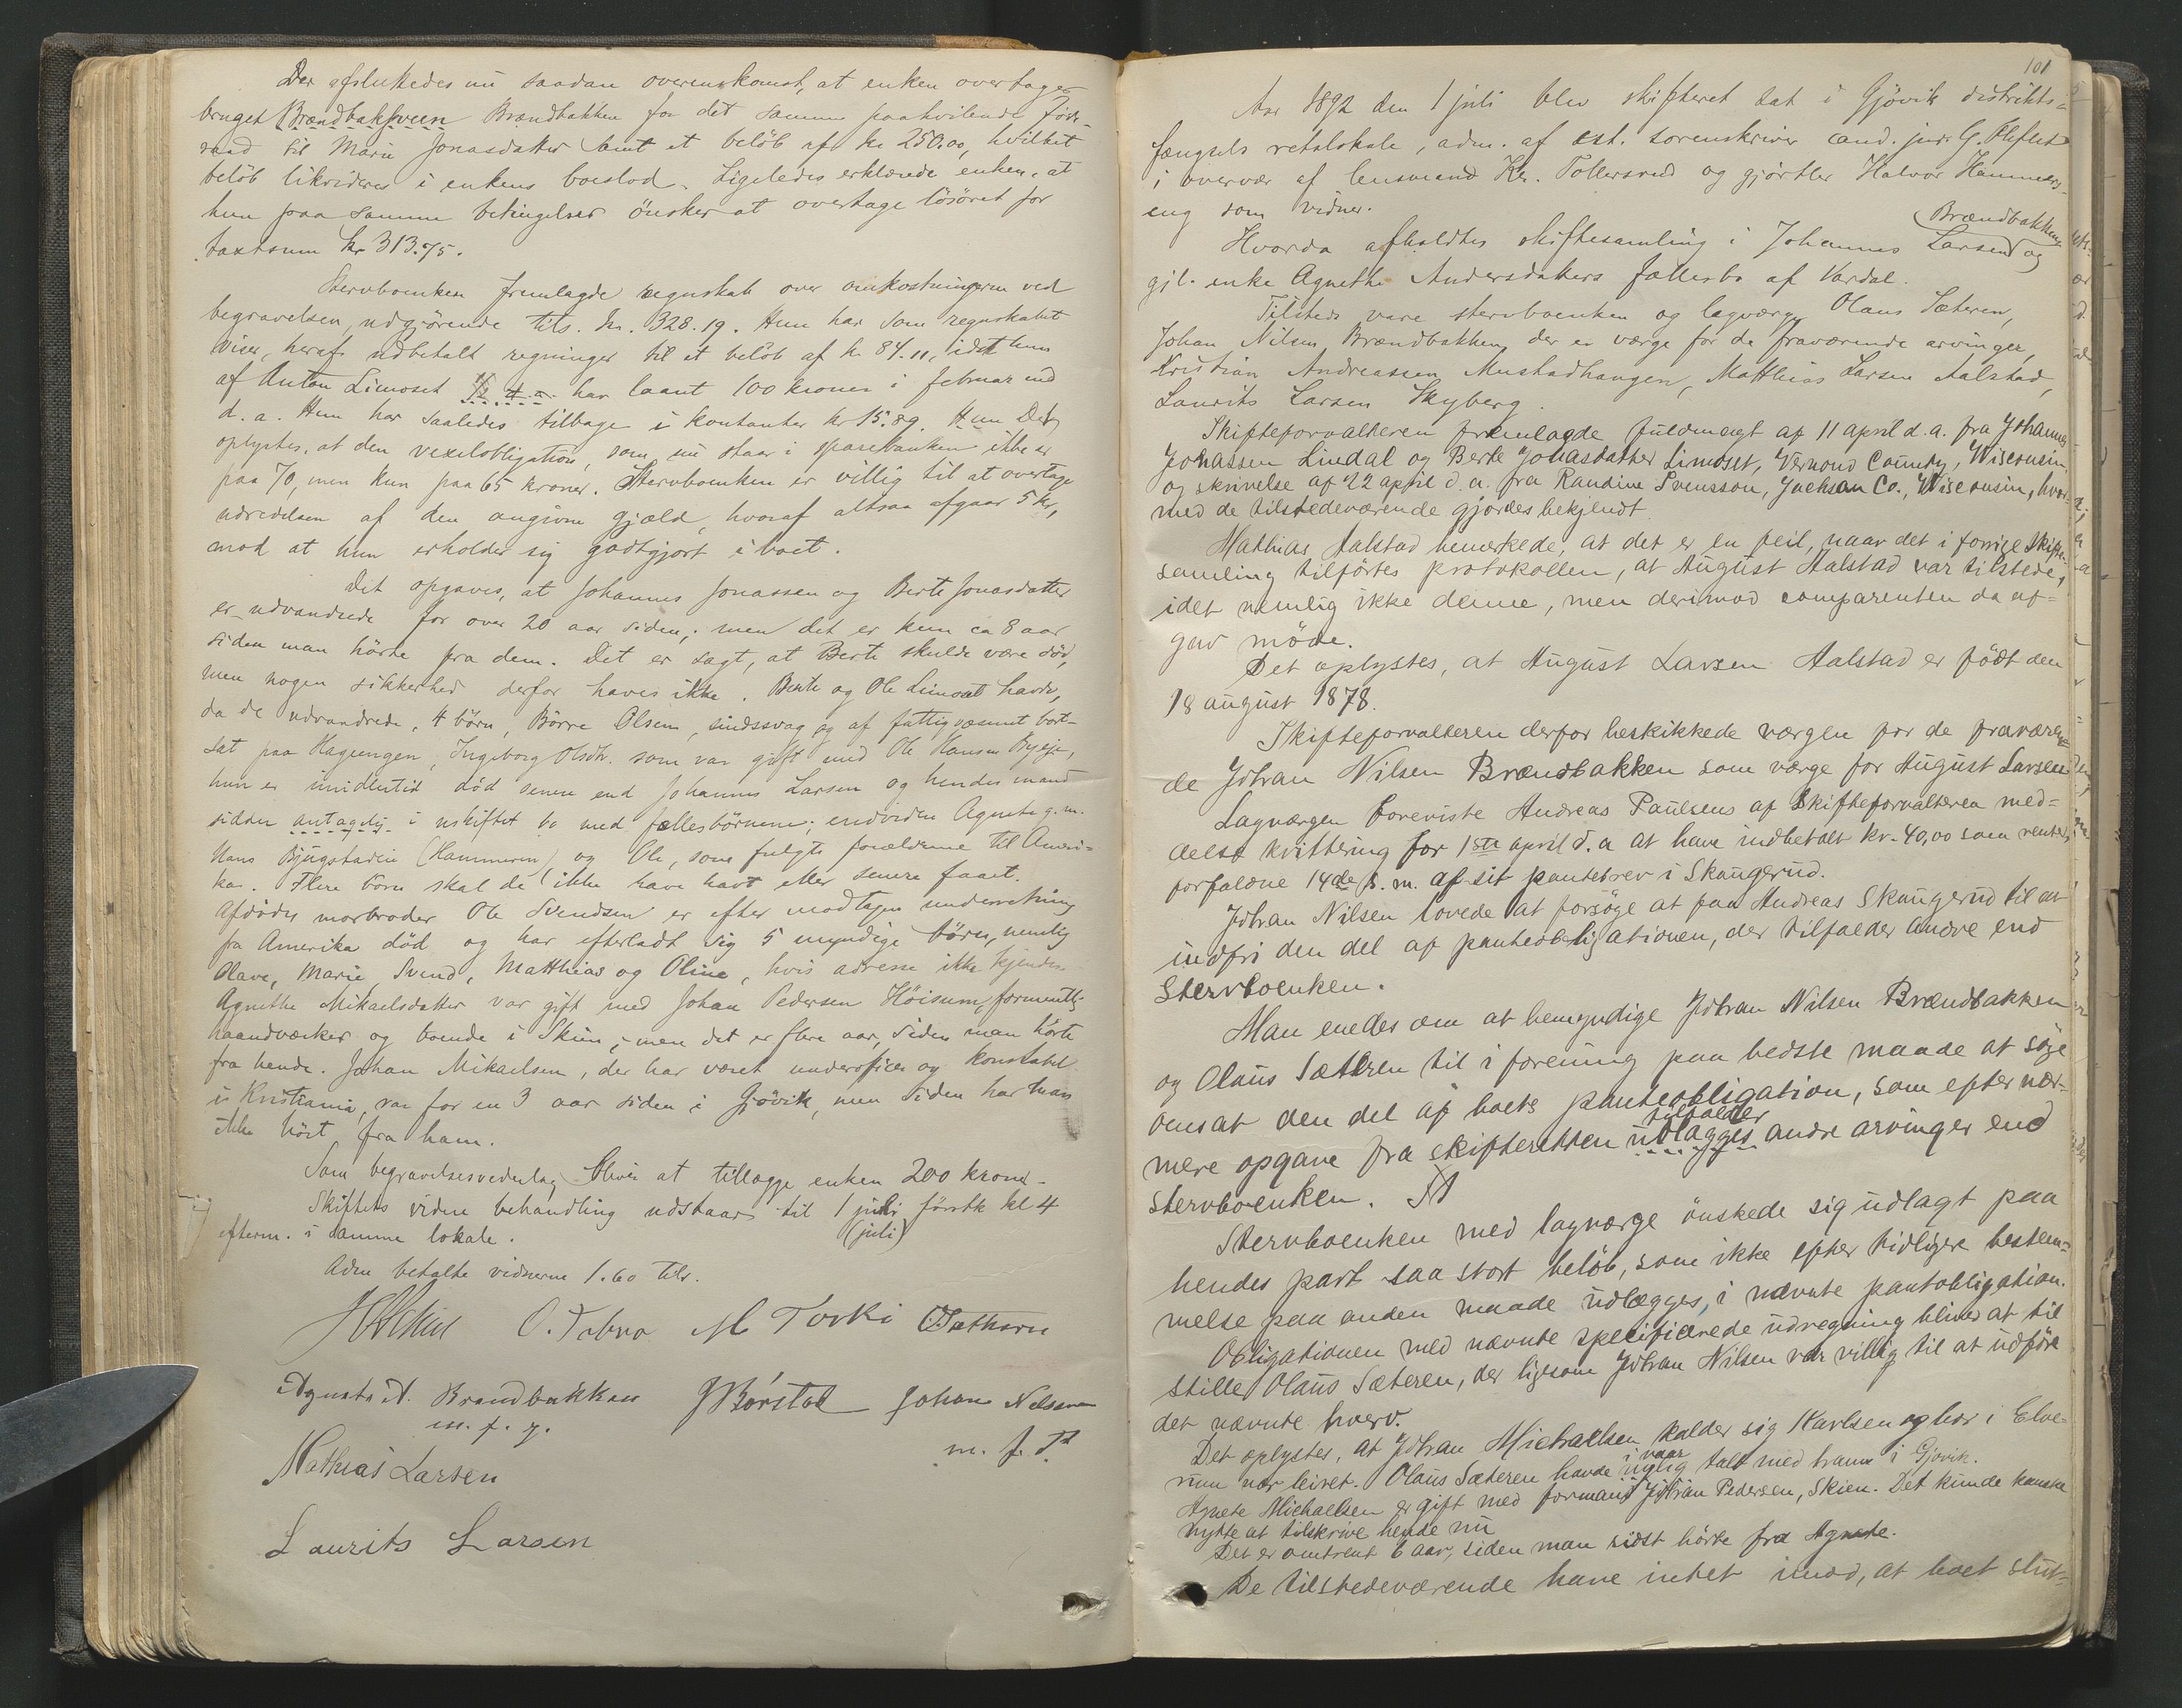 Der afsluttedes nu saadan overenskomst, at enken overtager
bruget Brændbakhveen Brændbakken for det samme paahvilende föde-
raad til Marie Jonasdatter samt et belöb af kr 250.00, hvilket
belöb likvideres i enkens boeslod. Ligeledes erklærede enken, at
hun paa samme betingelser önsker at overtage lösöret for
taxtsum kr 313.75.
Stervboenken fremlagde regnskab over omkostningerne ved
begravelsen, udgjörende tils. kr. 328.19. Hun har som regnskabet
viser, heraf udbetalt regninger til et belöb af kr 84.11, idet hun
af Anton Limoset har laant 100 kroner i februar md
d. a. Hun har saaledes tilbage i kontanter kr 15.89. Hun Det
oplystes, at den vexelobligation, som nu staar i sparebanken ikke er
paa 70, men kun paa 65 kroner. Stervboenken er villig til at overtage
udredelsen af den angivne gjæld, hvoraf altsaa afgaar 5 kr,
mod at hun erholder sig godtgjort i boet.
Det opgaves, at Johannes Jonassen og Berte Jonasdatter
er udvandrede for over 20 aar siden; men det er kun ca 8 aar
siden man hörte fra dem. Det er sagt, at Berte skulde være död,
men nogen sikkerhed derfor haves ikke. Berte og Ole Limoset havde,
da de udvandrede, 4 börn, Börre Olsen, sindssvag og af fattigvæsenet bort-
sat paa Hageengen, Ingeborg Olsdtr. som var gift med Ole Hansen Byeje,
hun er imidlertid död senere end Johannes Larsen og hendes mand
sidder antagelig i uskiftet bo med fællesbörnene; endvidere Agnete g. m.
Hans Bjugstadeie (Hammeren) og Ole, som fulgte forældrene til Ameri-
ka. Flere börn skal de ikke have havt eller senere faaet.
Afdödes morbroder Ole Svendsen er efter modtagen underretning
fra Amerika död og har efterladt sig 5 myndige börn, nemlig
Olave, Marie, Svend, Matthias og Oline, hvis adresse ikke kjendes
Agnethe Mikaelsdatter var gift med Johan Pedersen Höisum, formentlig
haandværker og boende i Skien; men det er flere aar, siden man hörte
fra hende. Johan Mikaelsen, der har været underofficer og konstabel
i Kristiania, var for en 3 aar siden i Gjövik, men siden har man
ikke hört fra ham.
Som begravelsesvederlag bliver at tillægge enken 200 kroner.
Skiftets videre behandling udstaar til 1 juli förstk kl 4
(juli)
efterm. i samme lokale.
Adm betalte vidnerne 1.60 tils.
O. Fobro M Torki
Agnete A. Brandbakken J Börstad Johan Nelsen
m. f. p.
m. f. P.
Mathias Larsen
Laurits Larsen
101
Aar 1892 den 1 juli blev skifteret sat i Gjövik distrikts-
fængsels retslokale, adm. af cst. sorenskriver cand. jur. G.
i overvær af lensmand Kr. Tollersrud og gjörtler Halvor Hammers-
eng som vidner.
Brændbakken
Hvorda afholdtes skiftesamling i Johannes Larsen og
gjl. enke Agnethe Andersdatters fællesbo af Vardal.
Tilstede vare stervboenken og lagværge Olaus Sæteren,
Johan Nilsen Brændbakken, der er værge for de fraværende arvinger,
Kristian Andreassen Mustadhaugen, Matthias Larsen Aalstad,
Laurits Larsen Skyberg.
Skifteforvalteren fremlagde fuldmagt af 11 april d. a. fra Johannes
Johassen Lindal og Berte Jonasdatter Limoset, Vernond County, Wisconsin,
og skrivelse af 22 april d. a. fra Randine Svensson, Jackson Co., Wisconsin, hvor-
med de tilstedeværende gjordes bekjendt.
Mathias Aalstad bemerkede, at det er en feil, naar det i forrige skifte-
samling tilförtes protokollen, at August Aalstad var tilstede,
idet nemlig ikke denne, men derimod comparenten da af-
gav möde.
Det oplystes, at August Larsen Aalstad er född den
18 august 1878.
Skifteforvalteren derfor beskikkede værgen for de fraværen-
de Johan Nilsen Brændbakken som værge for August Larsen.
Lagværgen foreviste Andreas Paulsens af skifteforvalteren med-
delse kvittering for 1ste april d. a at have indbetalt kr. 40,00 som renter,
forfaldne 14de s. m. af sit pantebrev i Skaugerud.
Johan Nilsen lovede at forsöge at faa Andreas Skaugerud til at
indfri den del af panteobligationen, der tilfalder andre end
Stervboenken.
Man enedes om at bemyndige Johan Nilsen Brændbakken
og Olaus Sæteren til i forening paa bedste maade at söge
omsat den del af boets panteobligation, som efter nær-
tilfalder
mere opgave fra skifteretten udlægges andre arvinger end
stervboenken.
Stervboenken med lagværge önskede sig udlagt paa
hendes part saa stort belöb, som ikke efter tidligere bestem-
melse paa anden maade udlægges, i nævnte pantobligation.
Obligationen med nævnte specificerede udregning bliver at til
stille Olaus Sæteren, der ligsom Johan Nilsen var villig til at udföre
det nævnte hverv.
Det oplystes, at Johan Michaelsen kalder sig Karlsen og bor i Elve-
i vaar
rum nær leiret. Olaus Sæteren havde nylig talt med ham i Gjövik.
Agnete Michaelsen er gift med formand Johan Pedersen, Skien. Det kunde kanske
nytte at tilskrive hende nu
Det er omtrent 6 aar, siden man sidst hörte fra Agnete.
De tilstedeværende have intet imod, at boet slut-